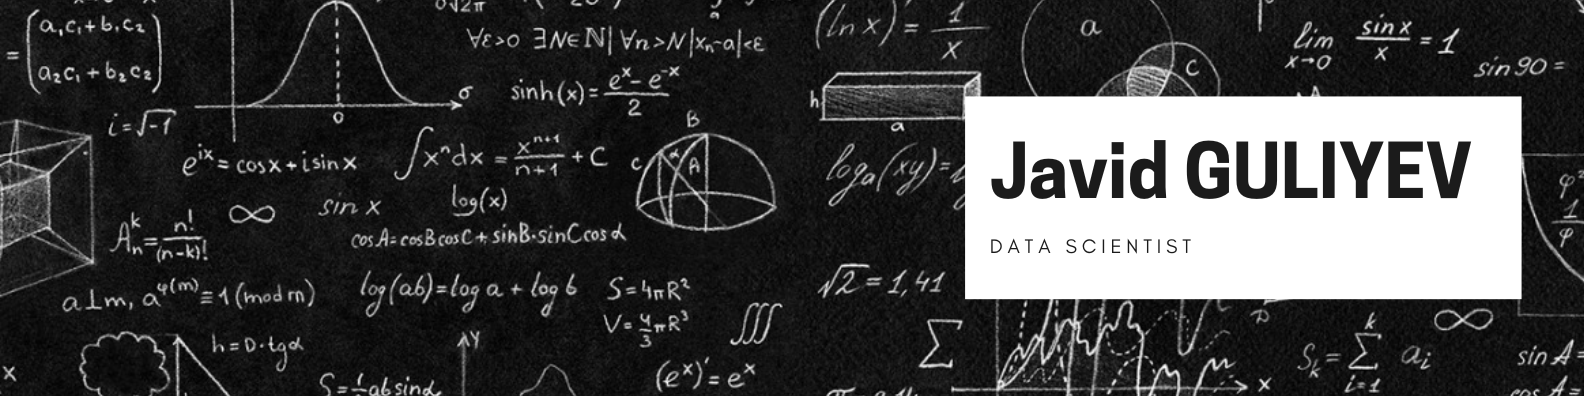 a₁c₁+b₁c₂
=
a₂c₁+b₂c₂
i=√-1
σ
0
∀ε>0 ∃N∈ℕ| ∀n>N |xₙ-a|<ε
sinh(x)= (eˣ-e⁻ˣ)/2
e^ix = cosx+isinx
∫xⁿdx = xⁿ⁺¹/(n+1) + C
B
C
α
A
Aₙᵏ= n!/(n-k)!
∞
sin x
log(x)
cosA=cosBcosC+sinB·sinCcosα
a⊥m, a^φ(m)≡1(mod m)
log(ab)=log a + log b
S=4πR²
V=4/3πR³
∭
h=D·tgα
Y
x
S=½absinα
(eˣ)'=eˣ
(ln x)'= 1/x
a
C
h
a
lim x→0 sinx/x = 1
sin90=
logₐ(xy)=
Javid GULIYEV
DATA SCIENTIST
φ²
1/φ
√2=1,41
∑
x
Sₖ= ∑ aᵢ
k
i=1
∞
sin A=
cos A=